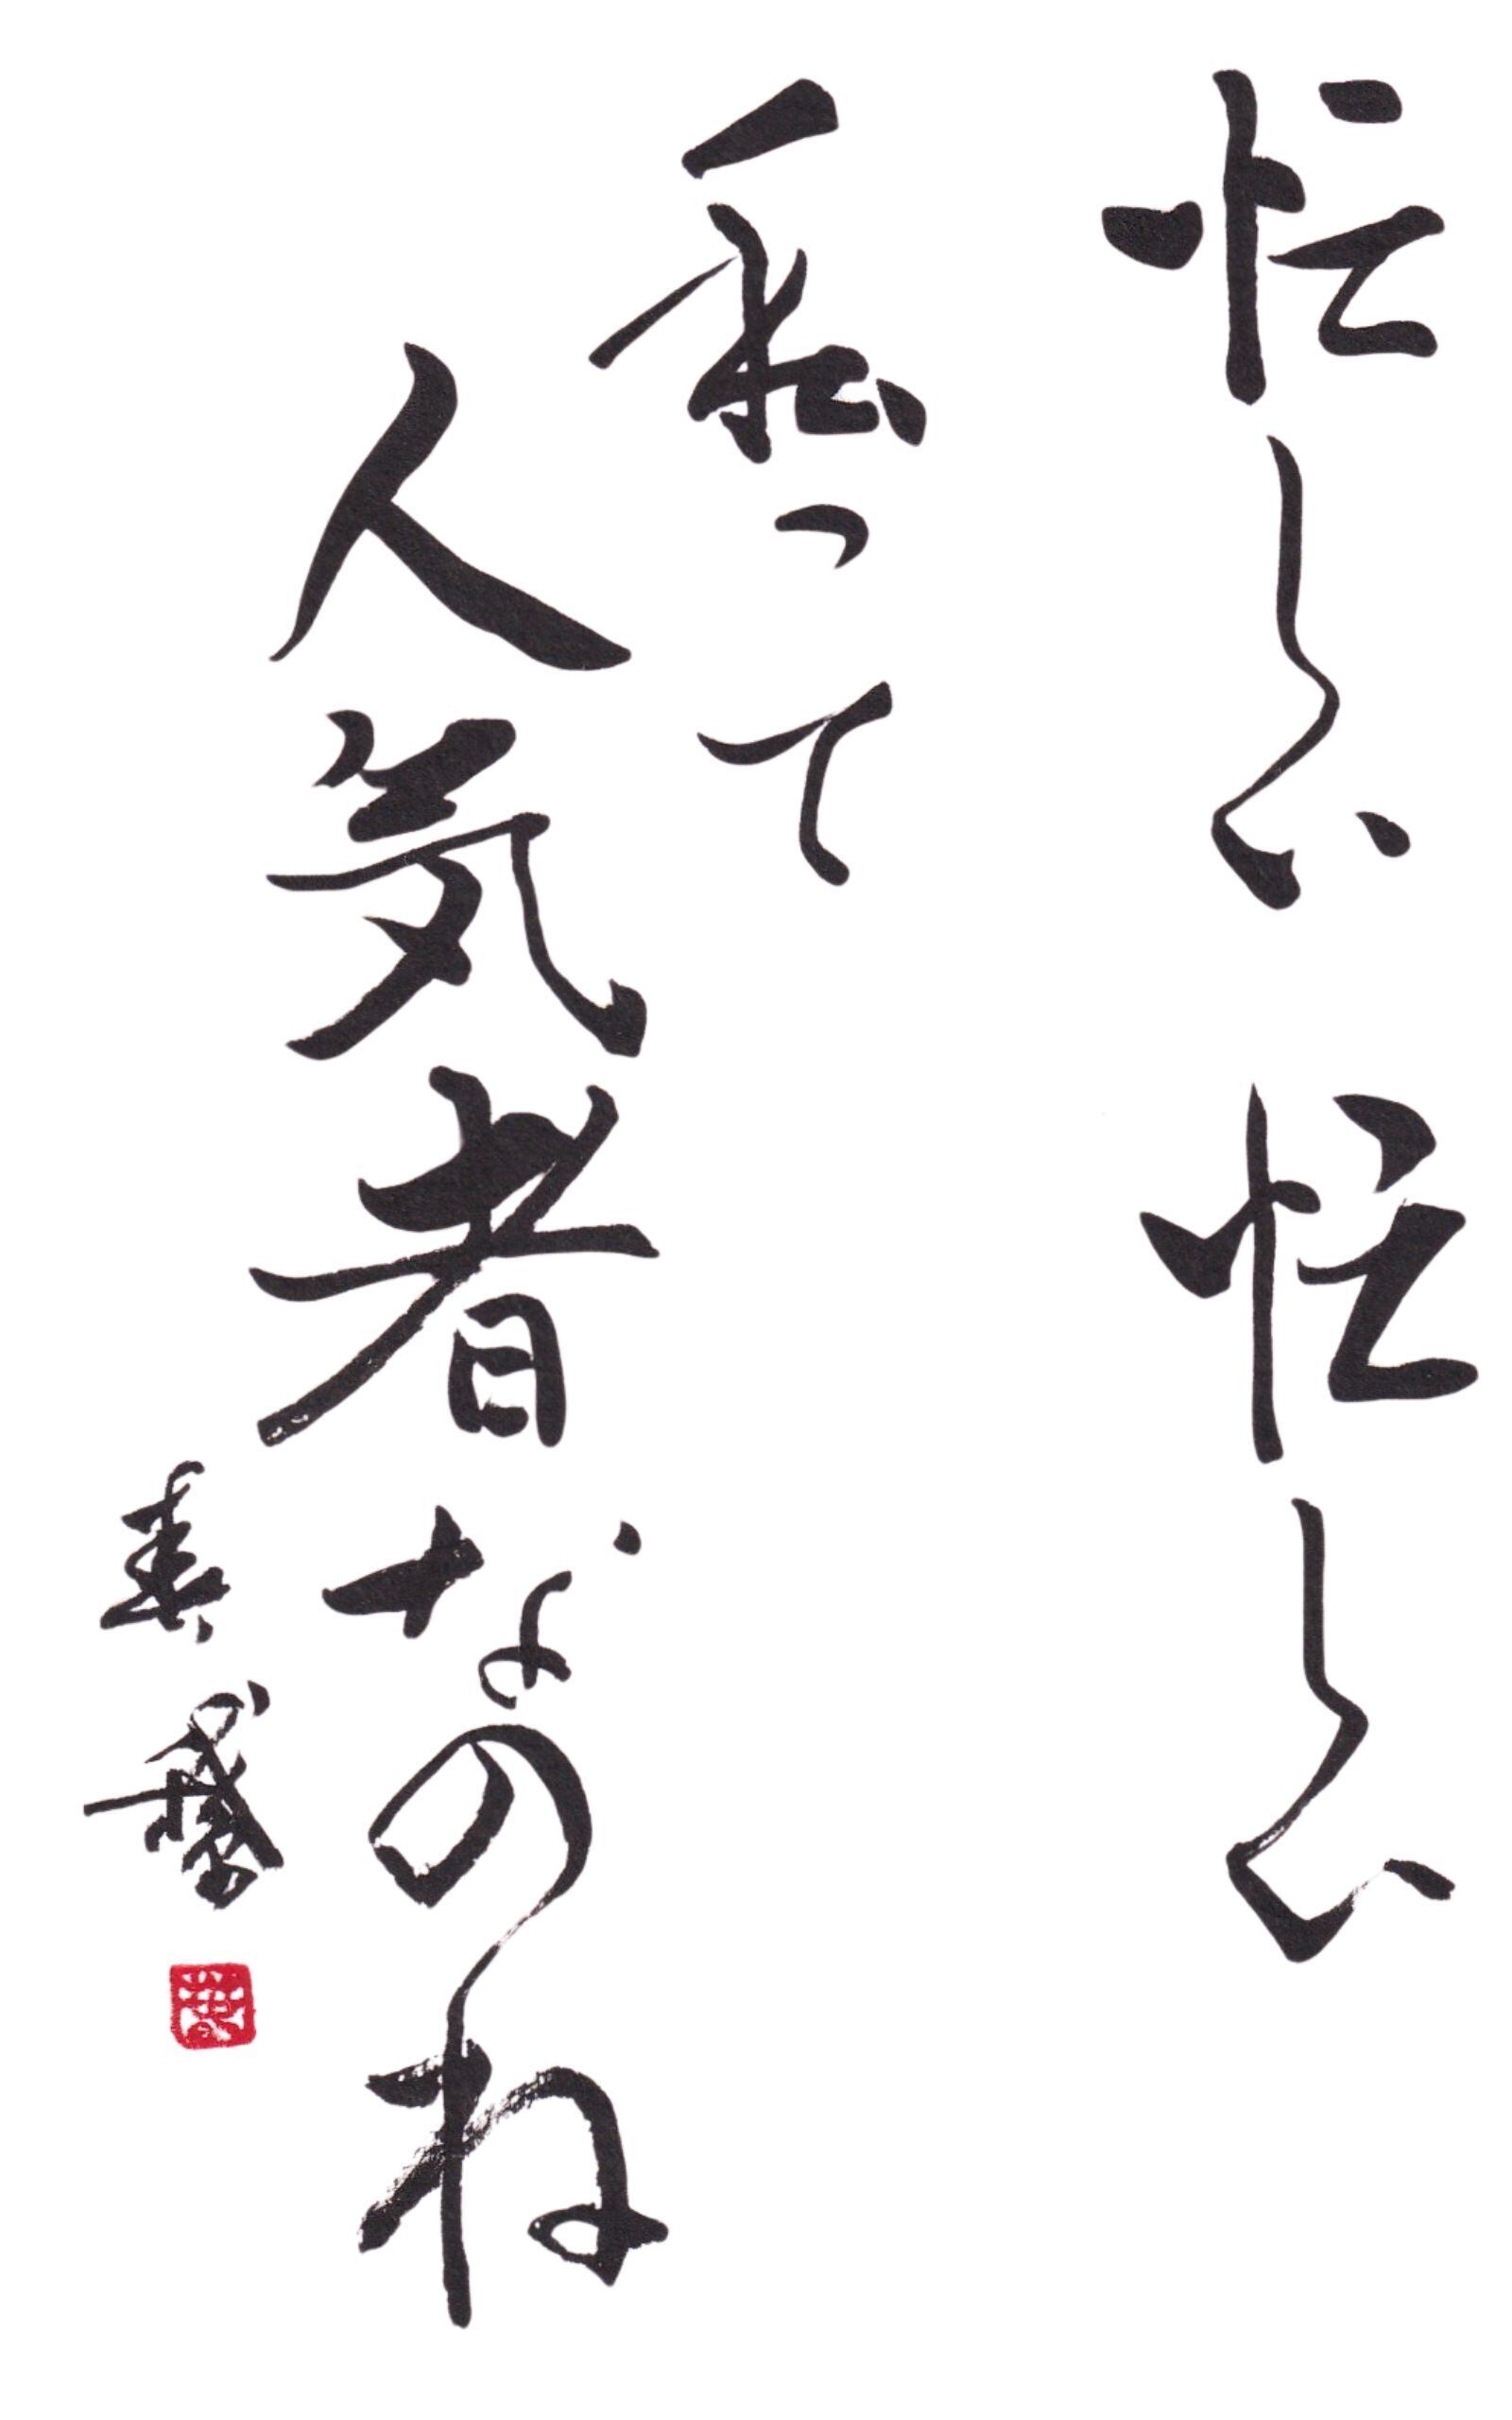 忙しい 忙しい
私って
人気者なのね